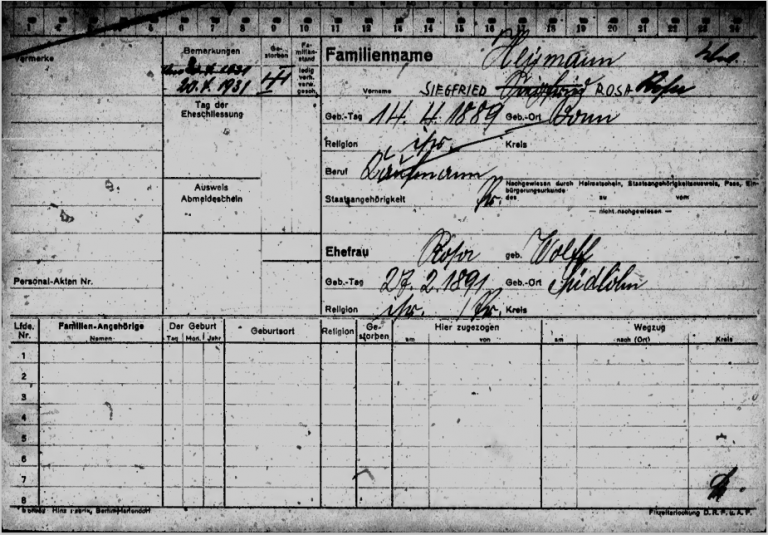 1 2 3 4 5 6 7 8 9 10 11 12 13 14 15 16 17 18 19 20 21 22 23 24
Vermerke
Bemerkungen
20. X. 1931
Ge-storben
Fa-milien-stand
ledig
verh.
verw.
gesch.
Familienname Heymann
Vorname SIEGFRIED Siegfried ROSA Rosa
Geb.-Tag 14. 4. 1889 Geb.-Ort Bonn
Tag der
Eheschliessung
Religion isr. Kreis
Beruf Kaufmann
Ausweis
Abmeldeschein
Staatsangehörigkeit Pr.
Nachgewiesen durch Heimatschein, Staatsangehörigkeitsausweis, Pass, Ein-
bürgerungsurkunde
des zu vom
— nicht nachgewiesen —
Ehefrau Rosa geb. Wolff
Personal-Akten Nr.
Geb.-Tag 27. 2. 1891 Geb.-Ort Südlohn
Religion isr. Pr. Kreis
Lfde. Nr. Familien-Angehörige Der Geburt Geburtsort Religion Ge-storben Hier zugezogen Wegzug
Namen Tag Mon. Jahr am von am nach (Ort) Kreis
1
2
3
4
5
6
7
8
Berlin-Mariendorf
D.R.P. u. A.P.